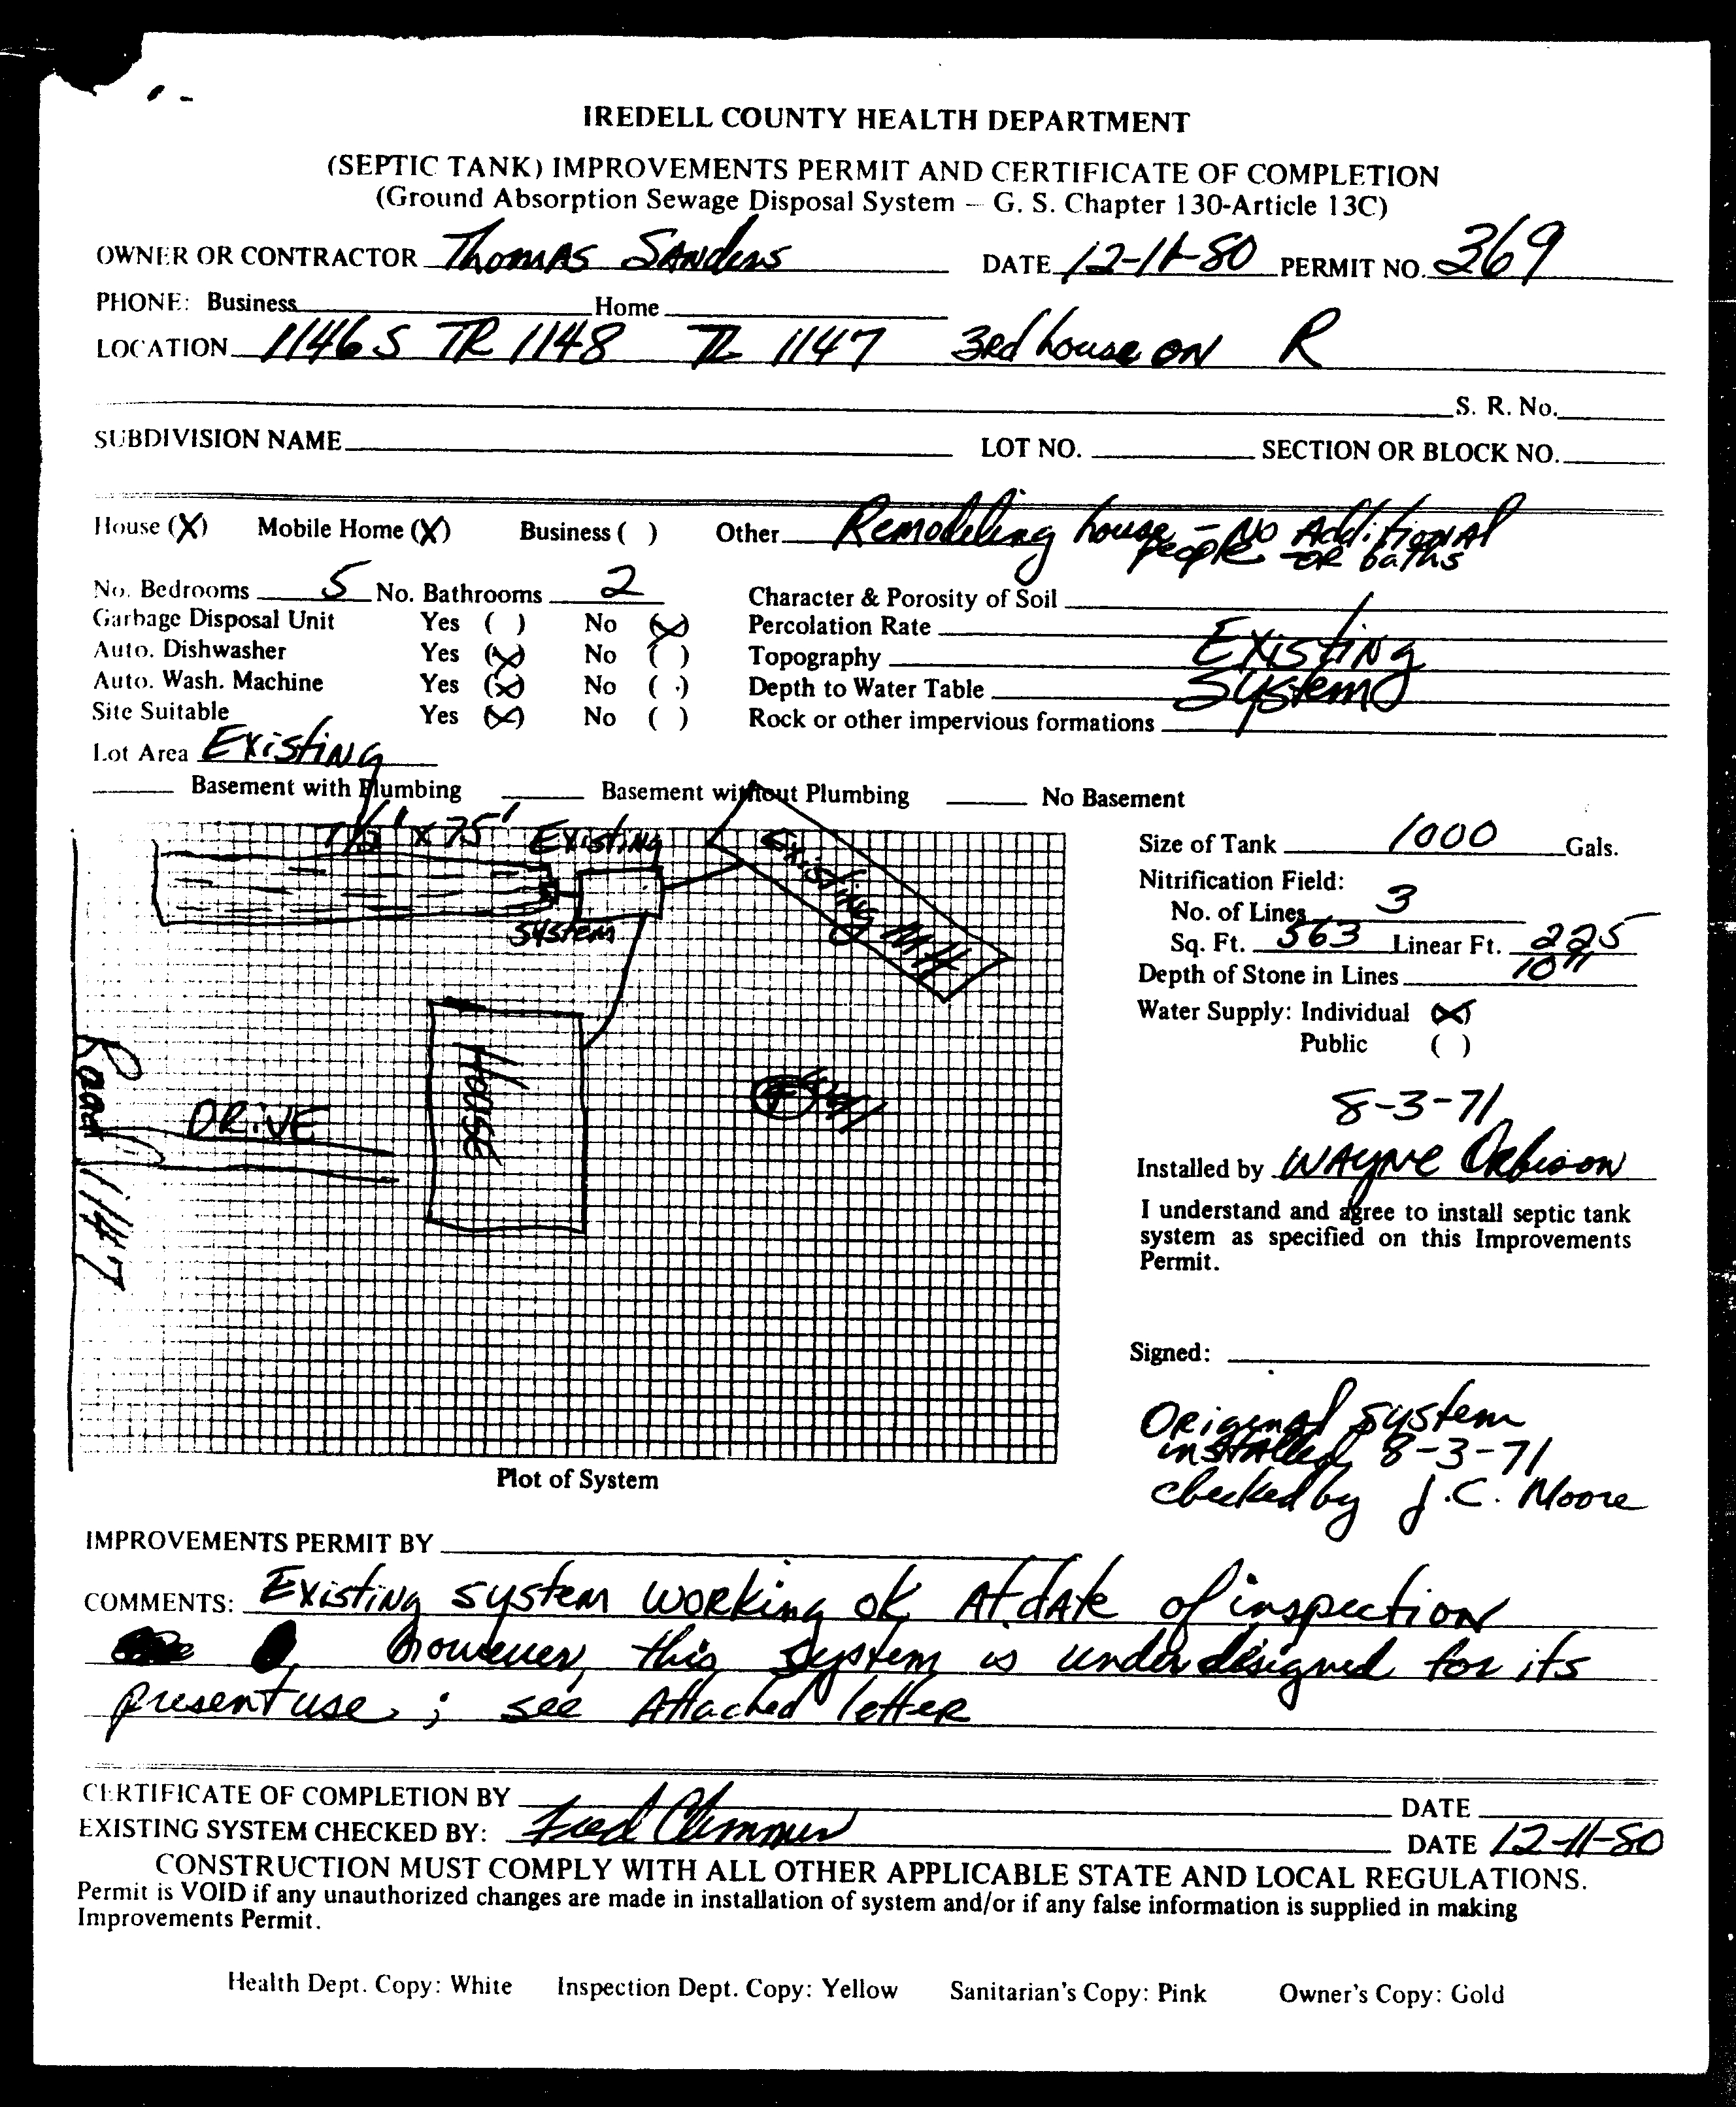 IREDELL COUNTY HEALTH DEPARTMENT
(SEPTIC TANK) IMPROVEMENTS PERMIT AND CERTIFICATE OF COMPLETION
(Ground Absorption Sewage Disposal System — G. S. Chapter 130-Article 13C)
OWNER OR CONTRACTOR Thomas Sanders DATE 12-11-80 PERMIT NO. 369
PHONE: Business Home
LOCATION 1146 S TR 1148 TL 1147 3rd house on R
S. R. No.
SUBDIVISION NAME LOT NO. SECTION OR BLOCK NO.
House (X) Mobile Home (X) Business ( ) Other Remodeling house - No Additional
people or baths
No. Bedrooms 5 No. Bathrooms 2 Character & Porosity of Soil
Garbage Disposal Unit Yes ( ) No (X) Percolation Rate
Auto. Dishwasher Yes (X) No ( ) Topography Existing
Auto. Wash. Machine Yes (X) No ( ) Depth to Water Table System
Site Suitable Yes (X) No ( ) Rock or other impervious formations
Lot Area Existing
Basement with Plumbing Basement without Plumbing No Basement
1½' x 75' Existing
System
Existing MH
House
DRIVE
Road 1147
Plot of System
Size of Tank 1000 Gals.
Nitrification Field:
No. of Lines 3
Sq. Ft. 563 Linear Ft. 225
Depth of Stone in Lines 10"
Water Supply: Individual (X)
Public ( )
8-3-71
Installed by Wayne Orbison
I understand and agree to install septic tank
system as specified on this Improvements
Permit.
Signed:
Original system
installed 8-3-71
checked by J.C. Moore
IMPROVEMENTS PERMIT BY
COMMENTS: Existing system working ok At date of inspection
however, this system is underdesigned for its
present use ; see Attached letter
CERTIFICATE OF COMPLETION BY DATE
EXISTING SYSTEM CHECKED BY: Fred Clemmer DATE 12-11-80
CONSTRUCTION MUST COMPLY WITH ALL OTHER APPLICABLE STATE AND LOCAL REGULATIONS.
Permit is VOID if any unauthorized changes are made in installation of system and/or if any false information is supplied in making
Improvements Permit.
Health Dept. Copy: White Inspection Dept. Copy: Yellow Sanitarian's Copy: Pink Owner's Copy: Gold